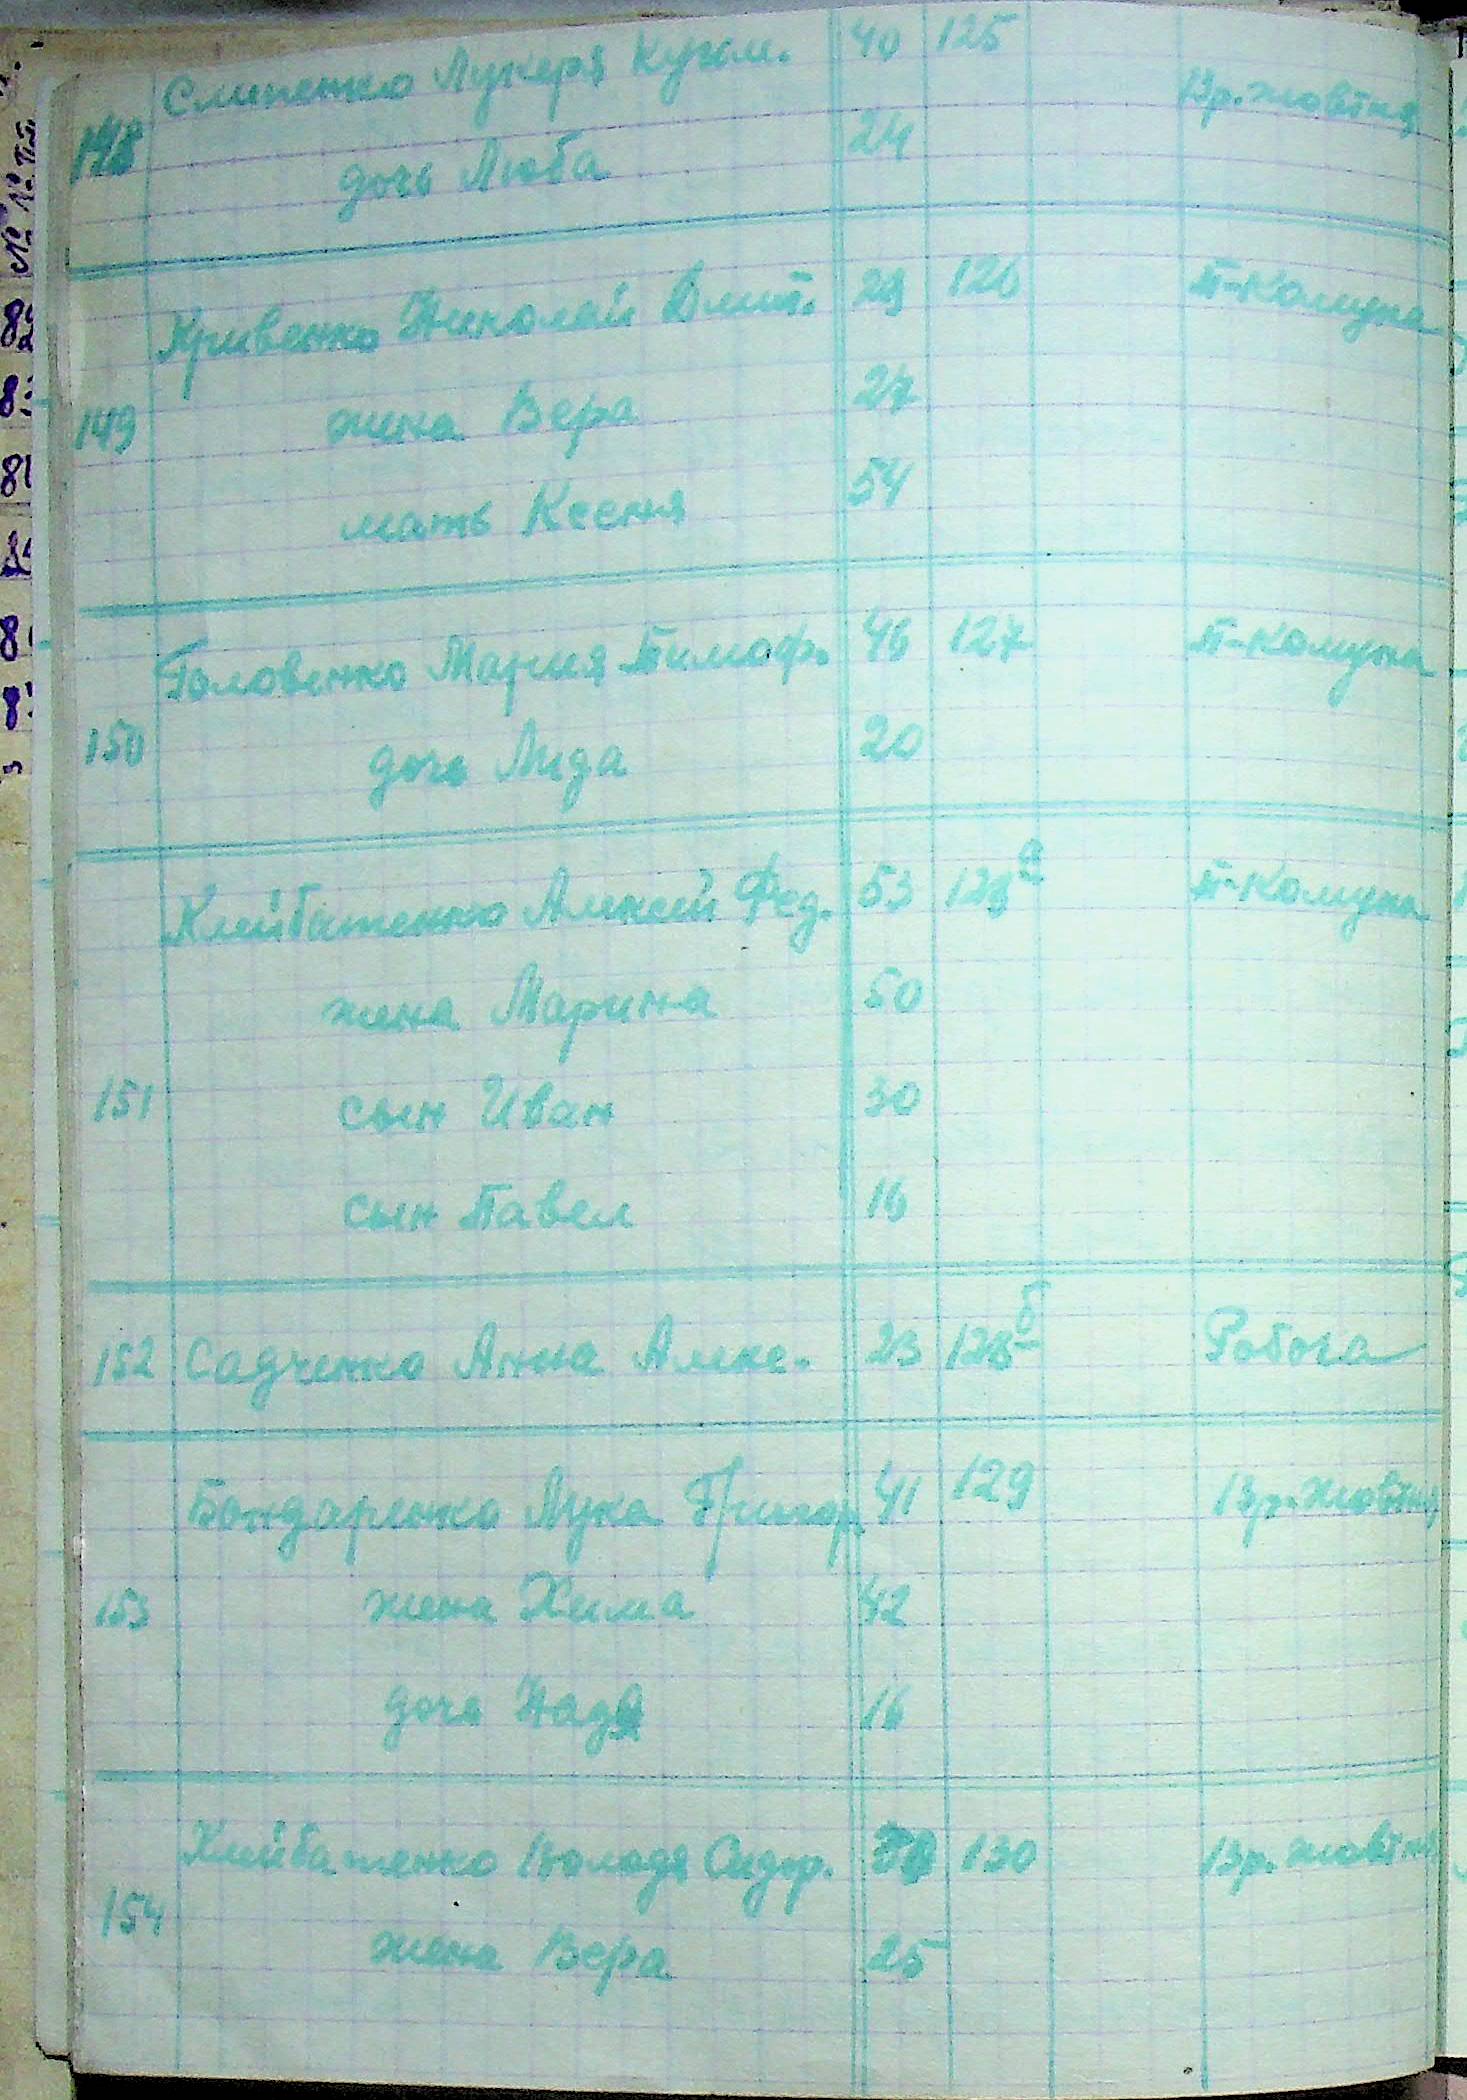 Слипенко Лукеря Кузм. 40 125 13р. жовтня
148 дочь Люба 24
Кривенко Николай Дмит. 29 126 П-Комуна
149 жена Вера 27
мать Ксеня 54
Головенко Мария Тимоф. 46 127 П-Комуна
150 дочь Лида 20
Хлейбатенко Алексей Фед. 53 128а П-Комуна
жена Марина 50
151 сын Иван 30
сын Павел 16
152 Садченко Анна Алекс. 23 128б Робоча
Бондаренко Лука Григор. 41 129 13р. жовтня
153 жена Хима 42
дочь Надя 16
Хлейбатенко Володя Сидор. 130 13р. жовтня
154 жена Вера 25